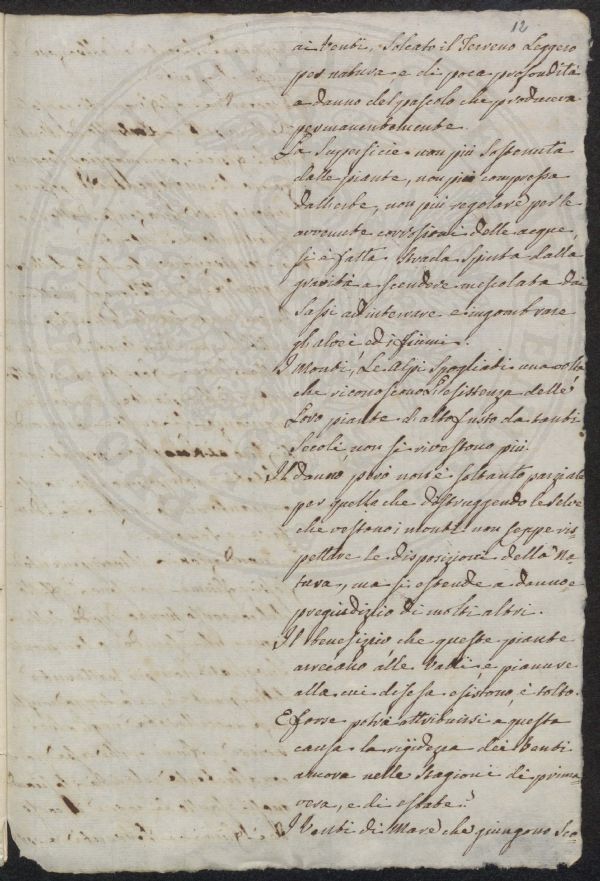 12
ai Venti, Solcato il Terreno Leggero
per natura e di poca profondità
a danno del pascolo che produceva
permanentemente.
La Superficie non più Sostenuta
dalle piante, non più compressa
dall'erbe, non più regolare per le
avvenute corrosioni delle acque,
si è fatta strada spinta dalla
gravità a scendere mescolata dai
Sassi ad interrare e ingombrare
gli alvei ed i fiumi.
I Monti, Le Alpi Spogliati una volta
che riconoscono L'esistenza delle
Loro piante d'alto fusto da tanti
Secoli non si rivestono più.
Il danno però non è soltanto parziale
per quello che distruggendo le selve
che vestono i monti non seppe ris
pettare le disposizioni della Na,
tura, ma si estende a danno e
pregiudizio di molti altri.
Il benefizio che queste piante
arrecano alle Valli, e pianure
alla cui difesa esistono, è tolto.
E forse potrà attribuirsi a questa
causa la rigidezza dei Venti
ancora nelle Stagioni di prima,
vera, e di estate.
I Venti di Mare che giungono Sco,